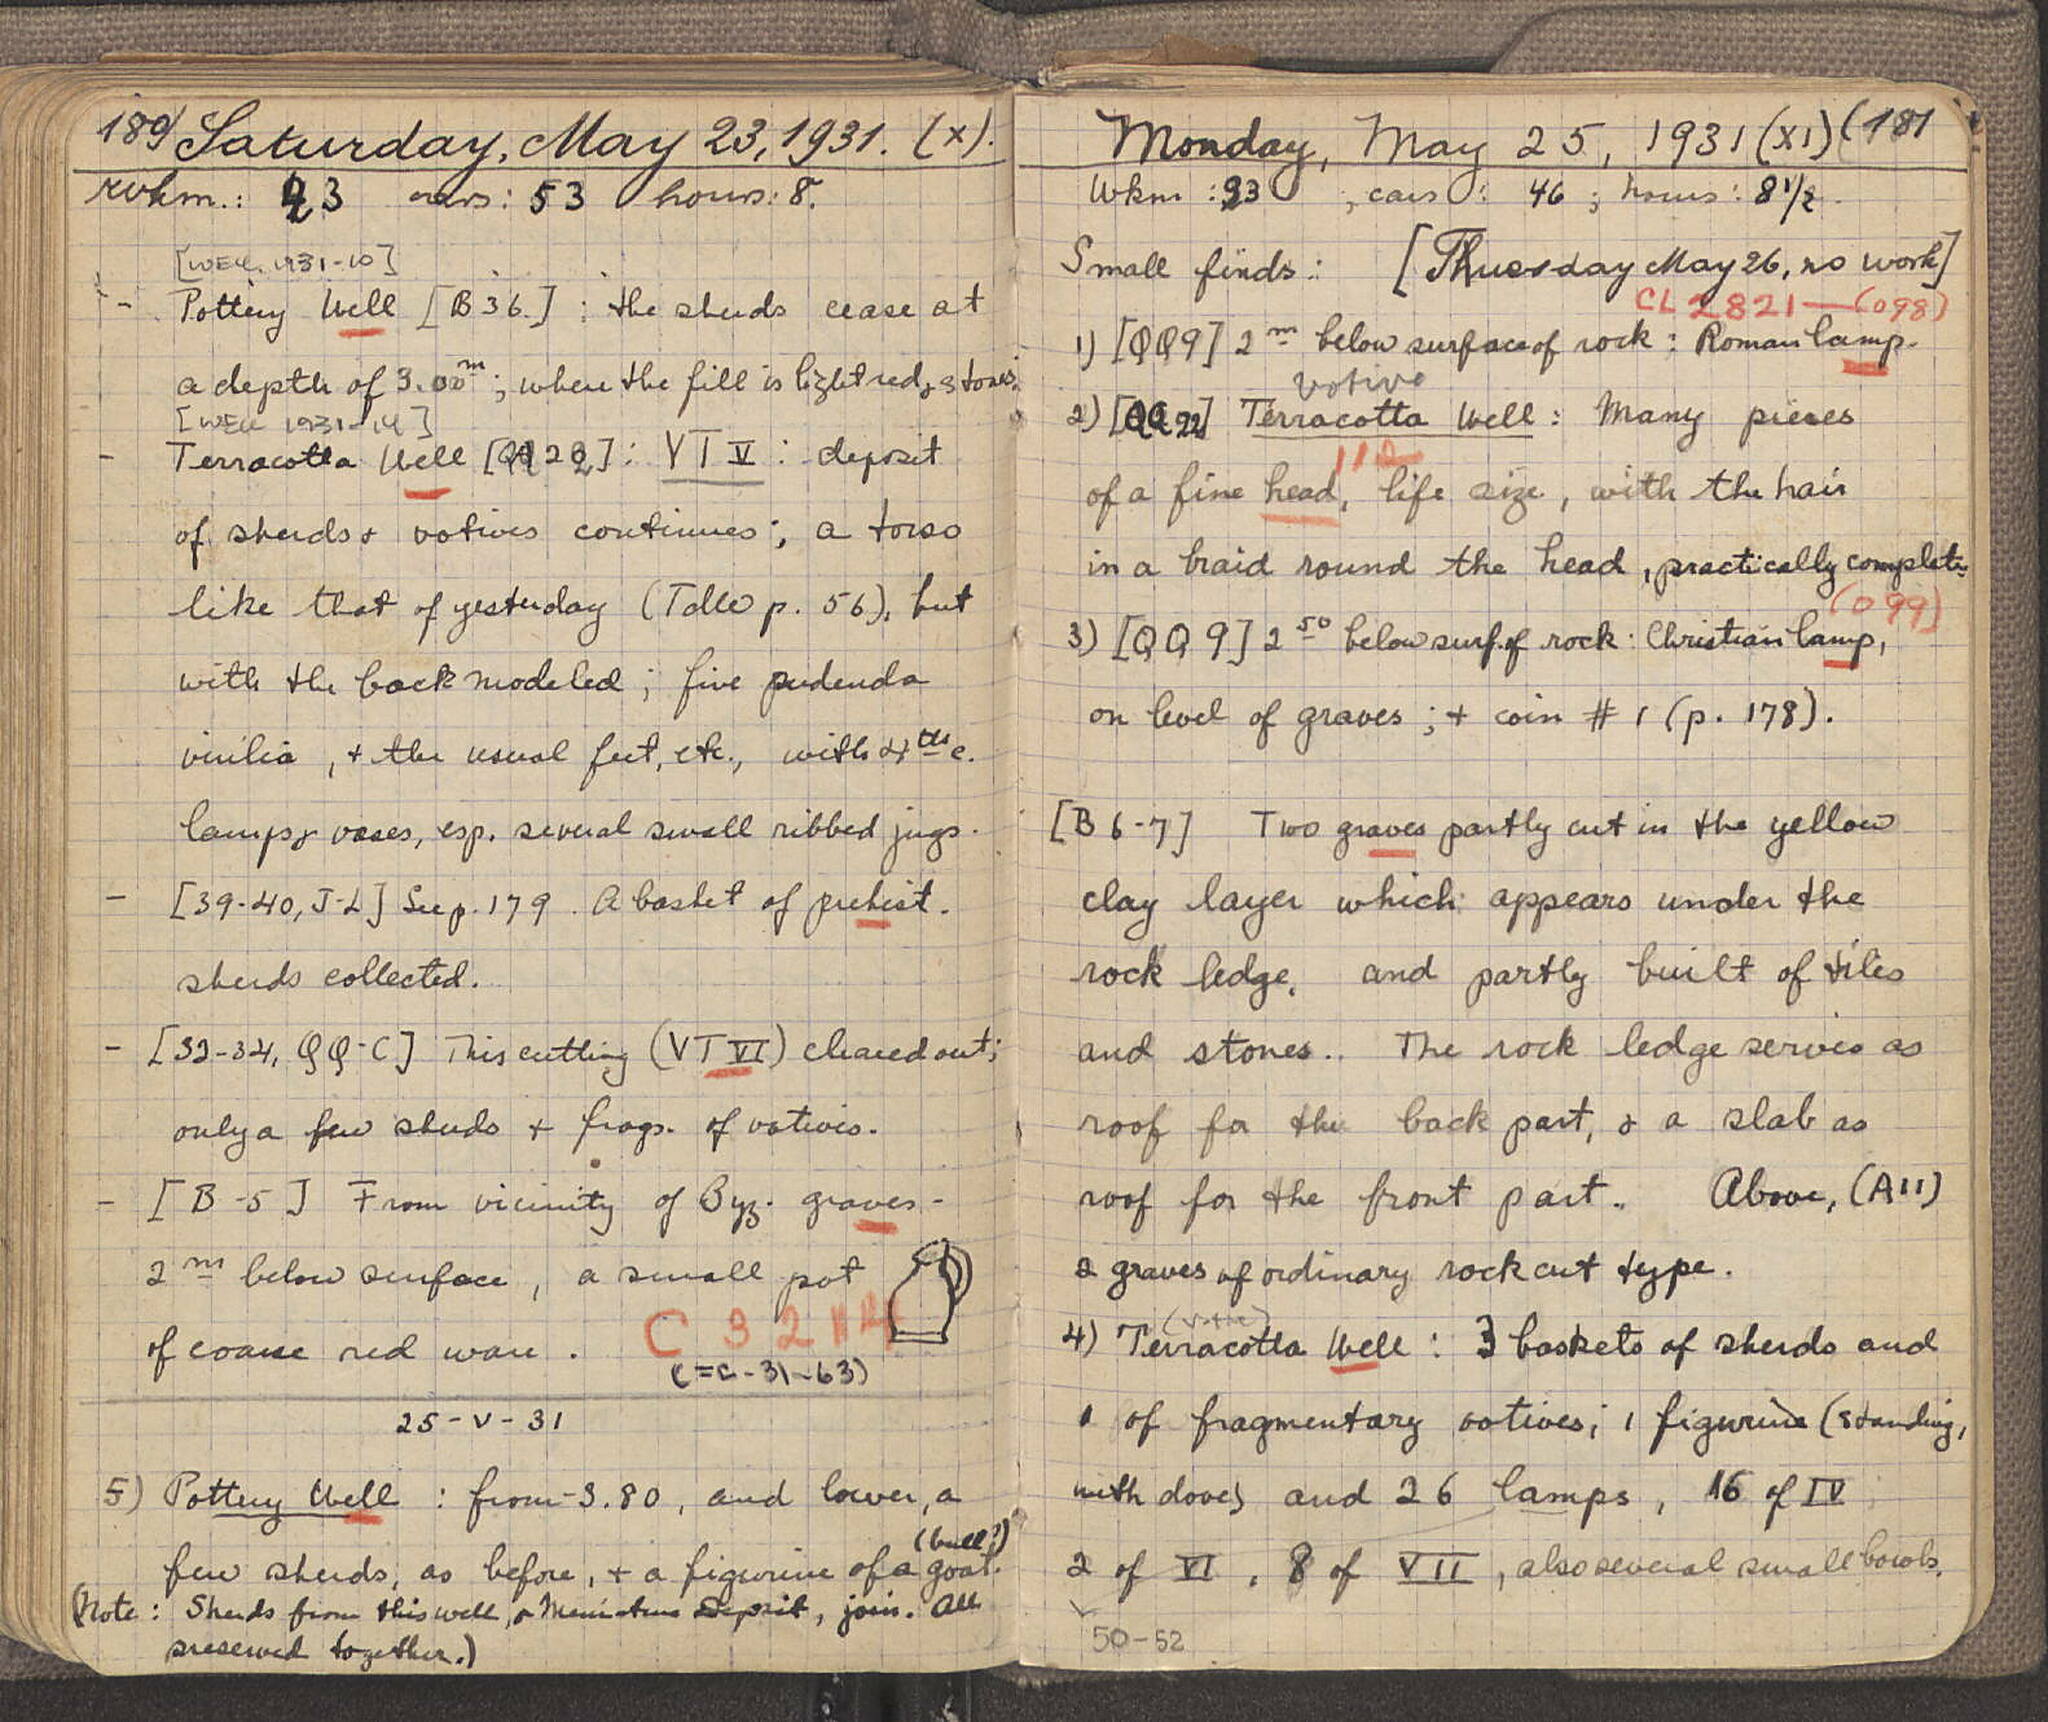 180) Saturday, May 23, 1931. (X).
wkm.: 43 cars: 53 hours: 8.
[WELL 1931-10]
- Pottery Well [B 36.] : the sherds cease at
a depth of 3.00m ; where the fill is light red, & stones.
[WELL 1931-14]
- Terracotta Well [QQ 22] : VT V : deposit
of sherds & votives continues ; a torso
like that of yesterday (TdeW p. 56), but
with the back modeled ; five pudenda
virilia , + the usual feet, etc., with 4th c.
lamps & vases, esp. several small ribbed jugs.
- [39-40, J-L] See p. 179. A basket of prehist.
sherds collected.
- [32-34, QQ-C] This cutting (VT VI) cleared out ;
only a few sherds + frags. of votives.
- [B-5] From vicinity of Byz. graves -
2m below surface , a small pot
of coarse red ware . C 32
(= C-31-63)
25-V-31
5) Pottery Well : from -3.80, and lower, a
(bull?)
few sherds, as before, + a figurine of a goat.
(Note : Sherds from this well, & Miniature Deposit, join. All
preserved together.)
Monday, May 25, 1931 (XI) (181
Wkm : 93 , cars : 46 ; hours : 8 1/2.
Small finds : [Thuesday May 26, no work]
CL 2821 — (098)
1) [QQ9] 2m below surface of rock : Roman lamp.
votive
2) [QQ 22] Terracotta Well : Many pieces
112
of a fine head, life size, with the hair
in a braid round the head, practically complete
(099)
3) [QQ 9] 2 50 below surf. of rock : Christian lamp,
on level of graves ; + coin # 1 (p. 178).
[B 6-7] Two graves partly cut in the yellow
clay layer which appears under the
rock ledge, and partly built of tiles
and stones.. The rock ledge serves as
roof for the back part, & a slab as
roof for the front part. Above, (A 11)
2 graves of ordinary rock cut type.
(votive)
4) Terracotta Well : 3 baskets of sherds and
1 of fragmentary votives ; 1 figurine (standing,
with dove) and 26 lamps , 16 of IV
2 of VI , 8 of VII , also several small bowls.
50-52